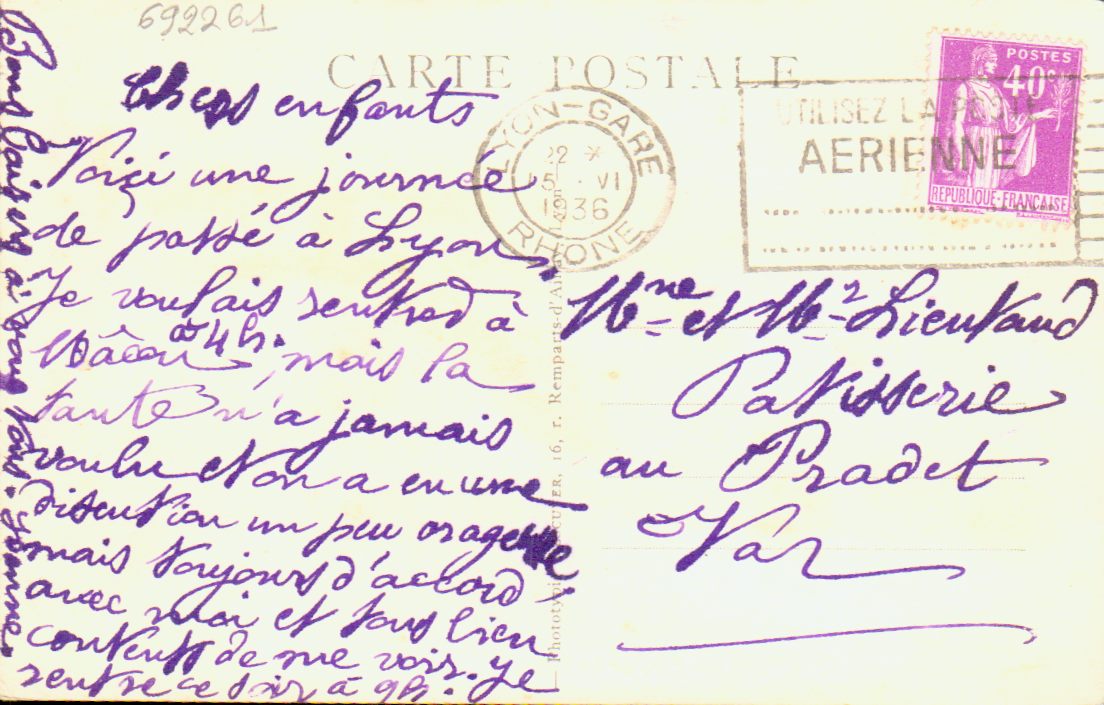 692261
CARTE POSTALE
Chers enfants
Voiçi une journée
de passé à Lyon,
Je voulais rentred à
Mâcon à 4h., mais la
tante n'a jamais
voulu et on a eu une
disention un peu orageuse
mais toujours d'accord
avec moi et tous bien
contents de me voir. Je
rentre ce soir à 9h.
Bons baisers à vous tous.
LYON-GARE
22 *
5 · VI
1936
RHÔNE
UTILISEZ LA POSTE
AERIENNE
POSTES
40c
REPUBLIQUE-FRANÇAISE
Mme et Mr Lieutaud
Patisserie
au Pradet
Var
16, r. Remparts-d'Ai